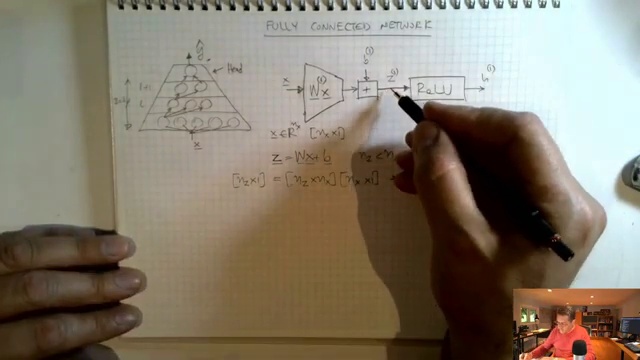 FULLY CONNECTED NETWORK
ŷ
Head
L+1
L
x
x
Wx
+
b⁽¹⁾
z⁽¹⁾
ReLU
h⁽¹⁾
x ∈ ℝⁿˣ [nₓ×1]
z = Wx + b n_z < n
[n_z×1] = [n_z×nₓ][nₓ×1] +